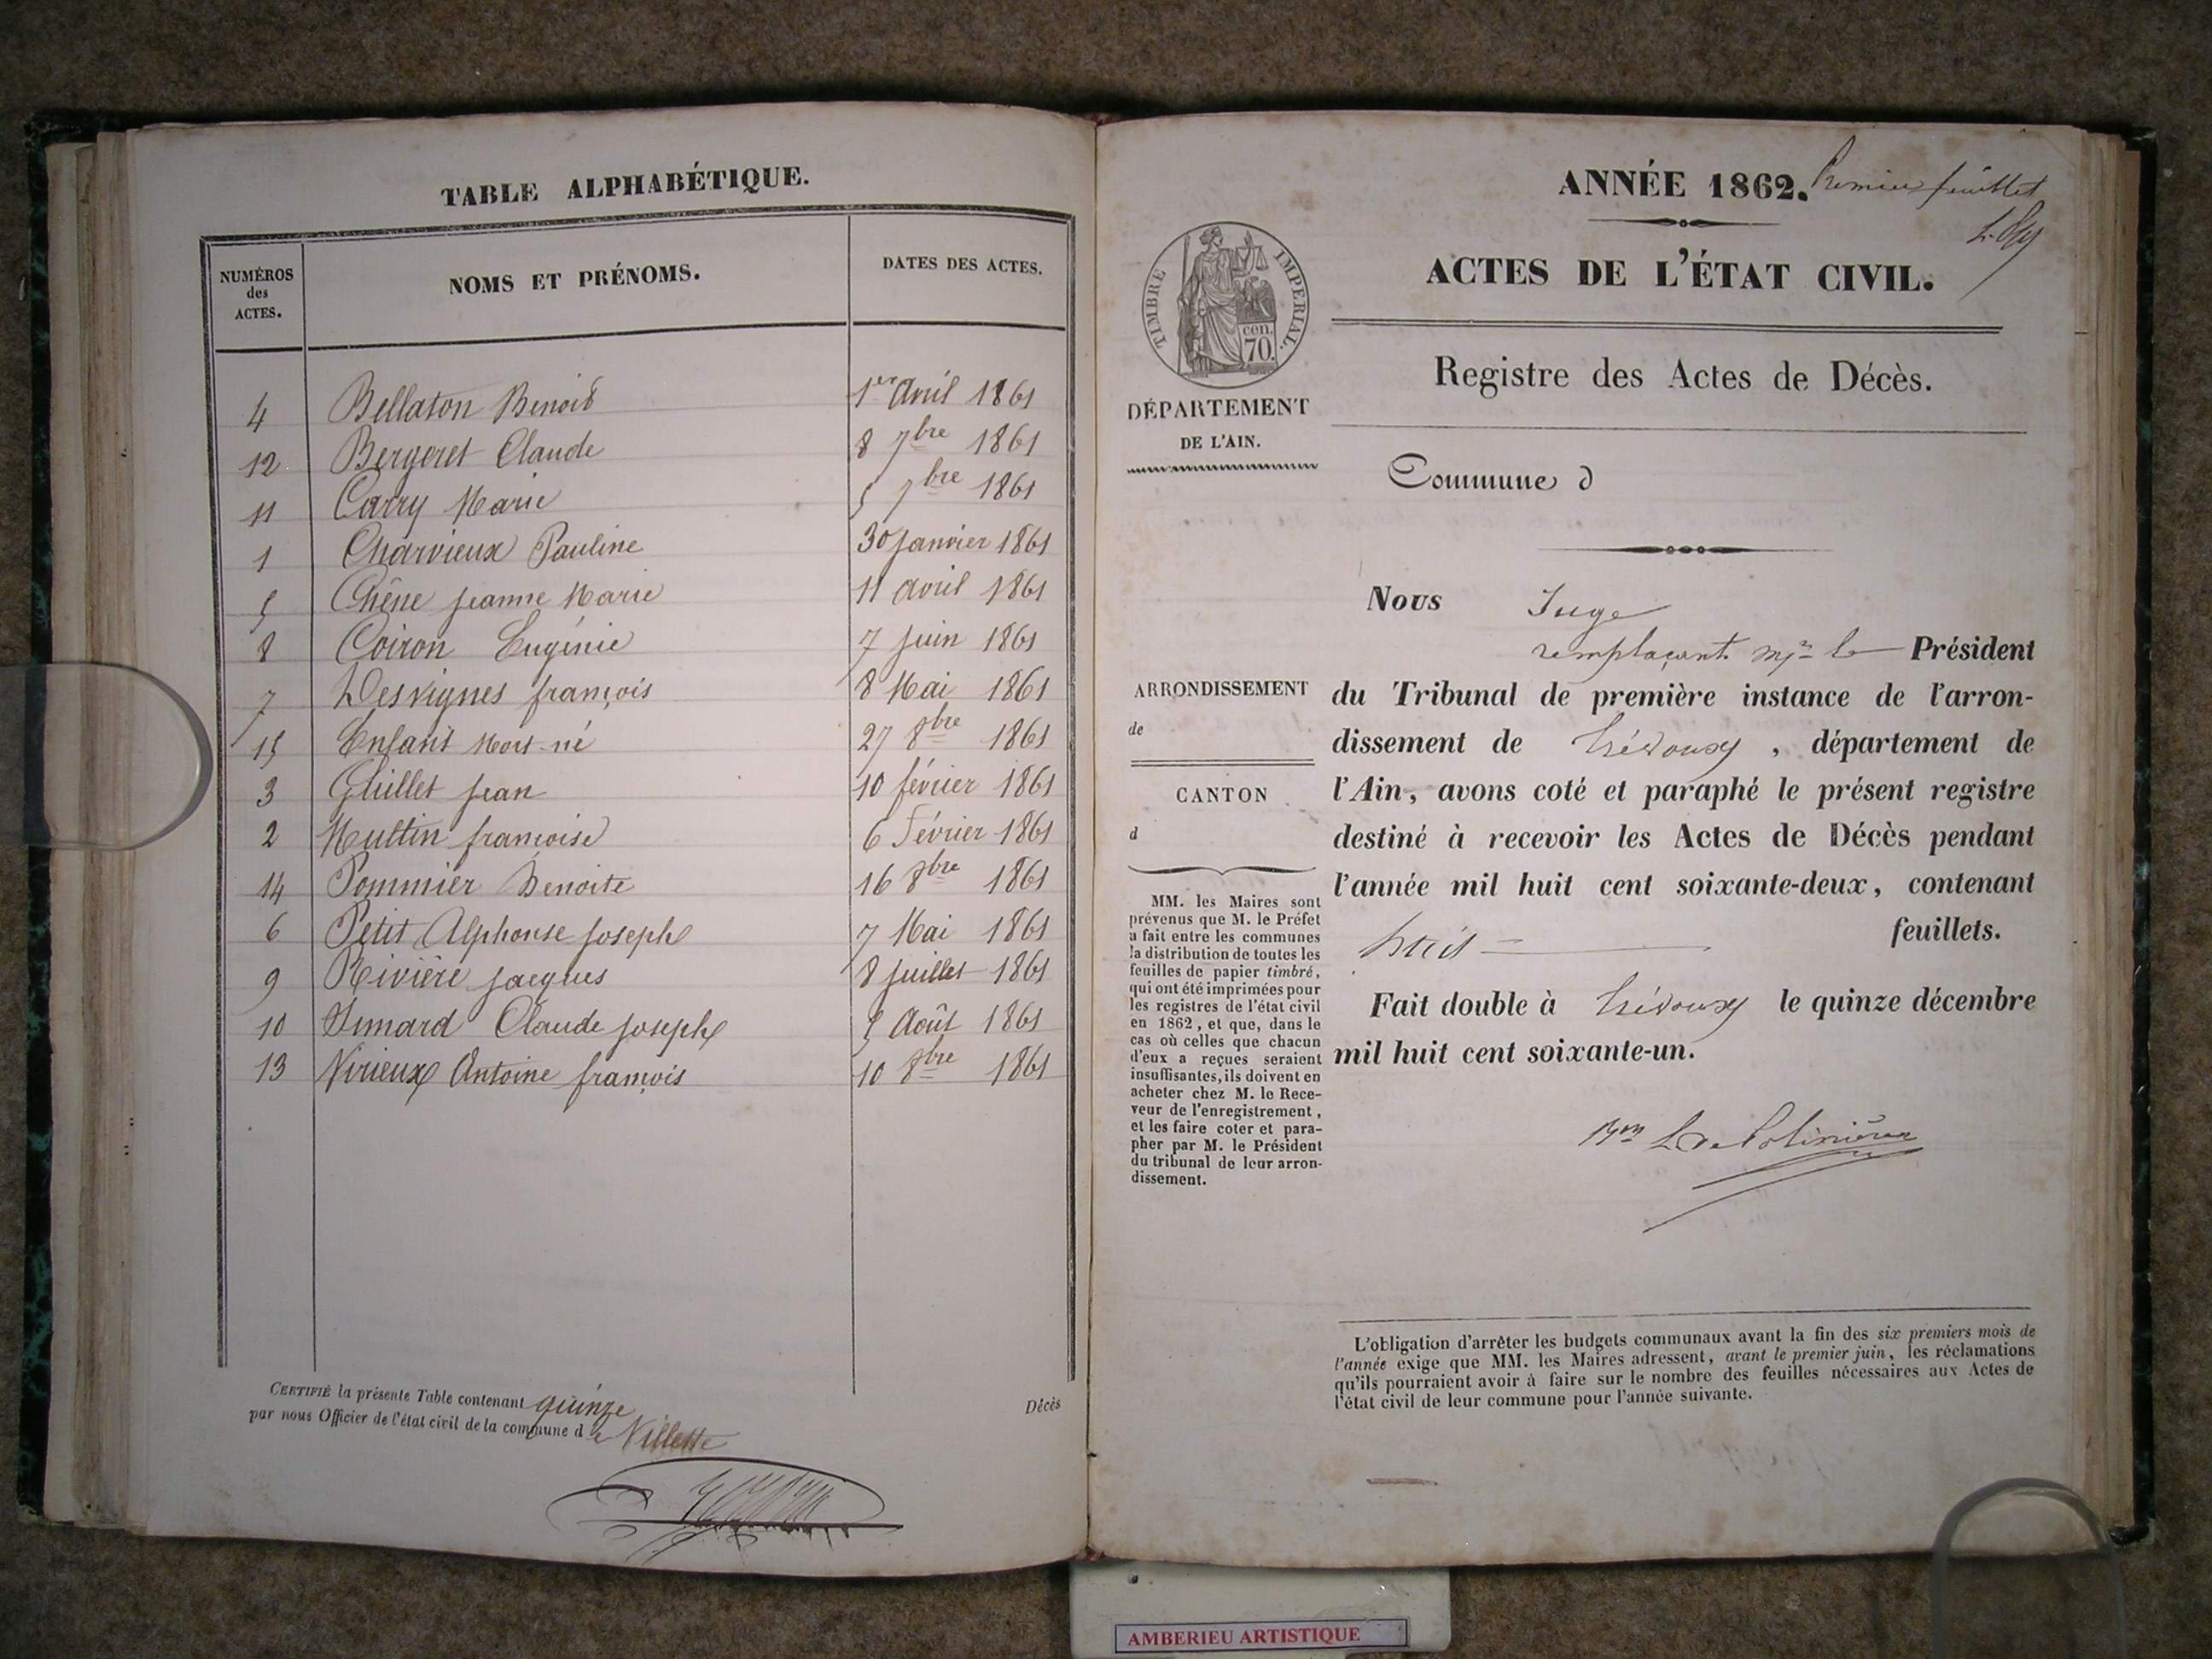 TABLE ALPHABÉTIQUE.
NUMÉROS des ACTES. NOMS ET PRÉNOMS. DATES DES ACTES.
4 Bellaton Benoit 1er Avril 1861
12 Bergeret Claude 8 7bre 1861
11 Carry Marie 5 7bre 1861
1 Charvieux Pauline 30 janvier 1861
5 Chêne jeanne Marie 11 avril 1861
8 Coiron Eugénie 7 juin 1861
7 Desvignes françois 8 Mai 1861
15 Enfant Mort-né 27 8bre 1861
3 Guillet jean 10 février 1861
2 Multin françoise 6 Février 1861
14 Pommier Benoite 16 8bre 1861
6 Petit Alphonse joseph 7 Mai 1861
9 Rivière jacques 8 juillet 1861
10 Claude joseph 5 Août 1861
13 Virieux Antoine françois 10 8bre 1861
CERTIFIÉ la présente Table contenant quinze Décès
par nous Officier de l'état civil de la commune d e Villette
ANNÉE 1862. Premier feuillet
ACTES DE L'ÉTAT CIVIL.
TIMBRE IMPERIAL.
cen.
70.
DÉPARTEMENT
DE L'AIN.
Registre des Actes de Décès.
Commune d
Nous Juge
remplaçant Mr le Président
ARRONDISSEMENT
de
CANTON
d
du Tribunal de première instance de l'arron-
dissement de Trévoux, département de
l'Ain, avons coté et paraphé le présent registre
destiné à recevoir les Actes de Décès pendant
l'année mil huit cent soixante-deux, contenant
huit feuillets.
Fait double à Trévoux le quinze décembre
mil huit cent soixante-un.
MM. les Maires sont
prévenus que M. le Préfet
a fait entre les communes
la distribution de toutes les
feuilles de papier timbré,
qui ont été imprimées pour
les registres de l'état civil
en 1862, et que, dans le
cas où celles que chacun
d'eux a reçues seraient
insuffisantes, ils doivent en
acheter chez M. le Rece-
veur de l'enregistrement,
et les faire coter et para-
pher par M. le Président
du tribunal de leur arron-
dissement.
L'obligation d'arrêter les budgets communaux avant la fin des six premiers mois de
l'année exige que MM. les Maires adressent, avant le premier juin, les réclamations
qu'ils pourraient avoir à faire sur le nombre des feuilles nécessaires aux Actes de
l'état civil de leur commune pour l'année suivante.
AMBERIEU ARTISTIQUE